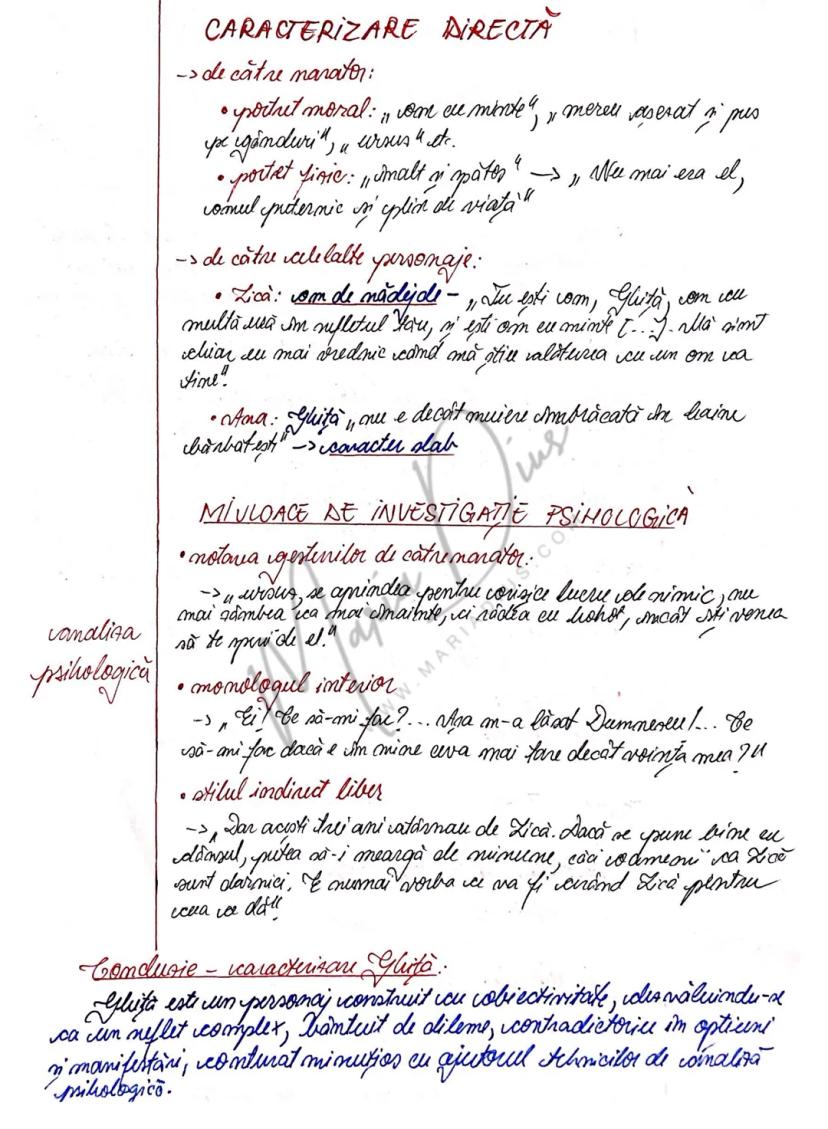 CARACTERIZARE DIRECTĂ
-> de către narator:
• portret moral: „om cu minte“, „mereu așezat și pus
pe gânduri“, „ursuz“ etc.
• portret fizic: „înalt și spătos“ -> „Nu mai era el,
omul puternic și plin de viață“
-> de către celelalte personaje:
• Lică: om de nădejde - „Tu ești om, Ghiță, om cu
multă ură în sufletul tău, și ești om cu minte [...]. Mă simt
chiar eu mai vrednic când mă știu alăturea cu un om ca
tine“.
• Ana: Ghiță „nu e decât muiere îmbrăcată în haine
bărbătești“ -> caracter slab
MIJLOACE DE INVESTIGAȚIE PSIHOLOGICĂ
• notarea gesturilor de către narator:
-> „ursuz, se aprindea pentru orișice lucru de nimic, nu
mai zâmbea ca mai înainte, ci râdea cu hohot, încât îți venea
să te sperii de el.“
analiza
psihologică
• monologul interior
-> „Ei! Ce să-mi fac?... Așa m-a lăsat Dumnezeu!... Ce
să-mi fac dacă e în mine ceva mai tare decât voința mea?“
• stilul indirect liber
-> „Dar acești trei ani atârnau de Lică. Dacă se pune bine cu
dânsul, putea să-i meargă de minune, căci oameni ca Lică
sunt darnici. E numai vorba ce va fi cerând Lică pentru
ceea ce dă“.
Concluzie - caracterizare Ghiță:
Ghiță este un personaj construit cu obiectivitate, dezvăluindu-se
ca un suflet complex, bântuit de dileme, contradictoriu în opțiuni
și manifestări, conturat minuțios cu ajutorul tehnicilor de analiză
psihologică.
Maria Dius
WWW.MARIADIUS.COM